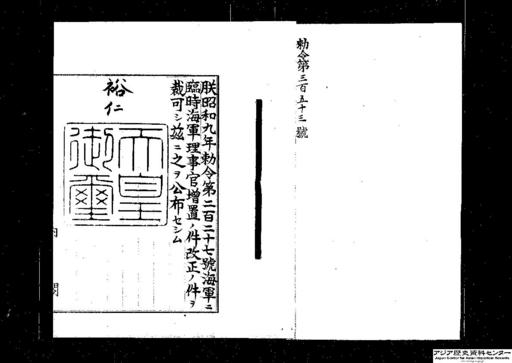 勅令第三百五十三號
朕昭和九年勅令第二百二十七號海軍ニ
臨時海軍理事官増置ノ件改正ノ件ヲ
裁可シ茲ニ之ヲ公布セシム
裕仁
天皇
御璽
内閣
アジア歴史資料センター
Japan Center for Asian Historical Records